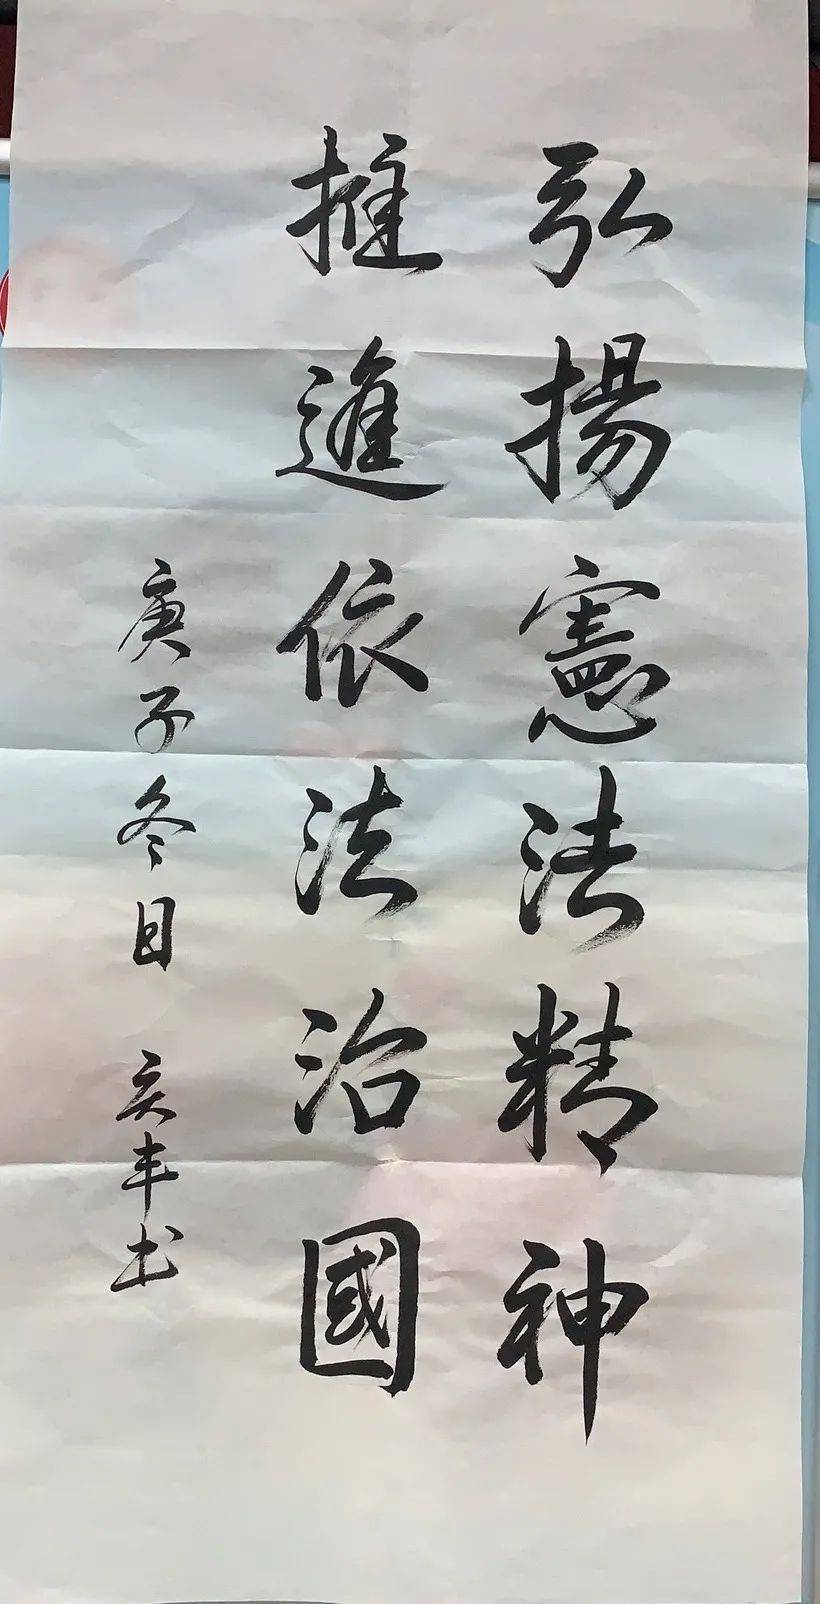 弘揚憲法精神
推進依法治國
庚子冬日 亥丰书